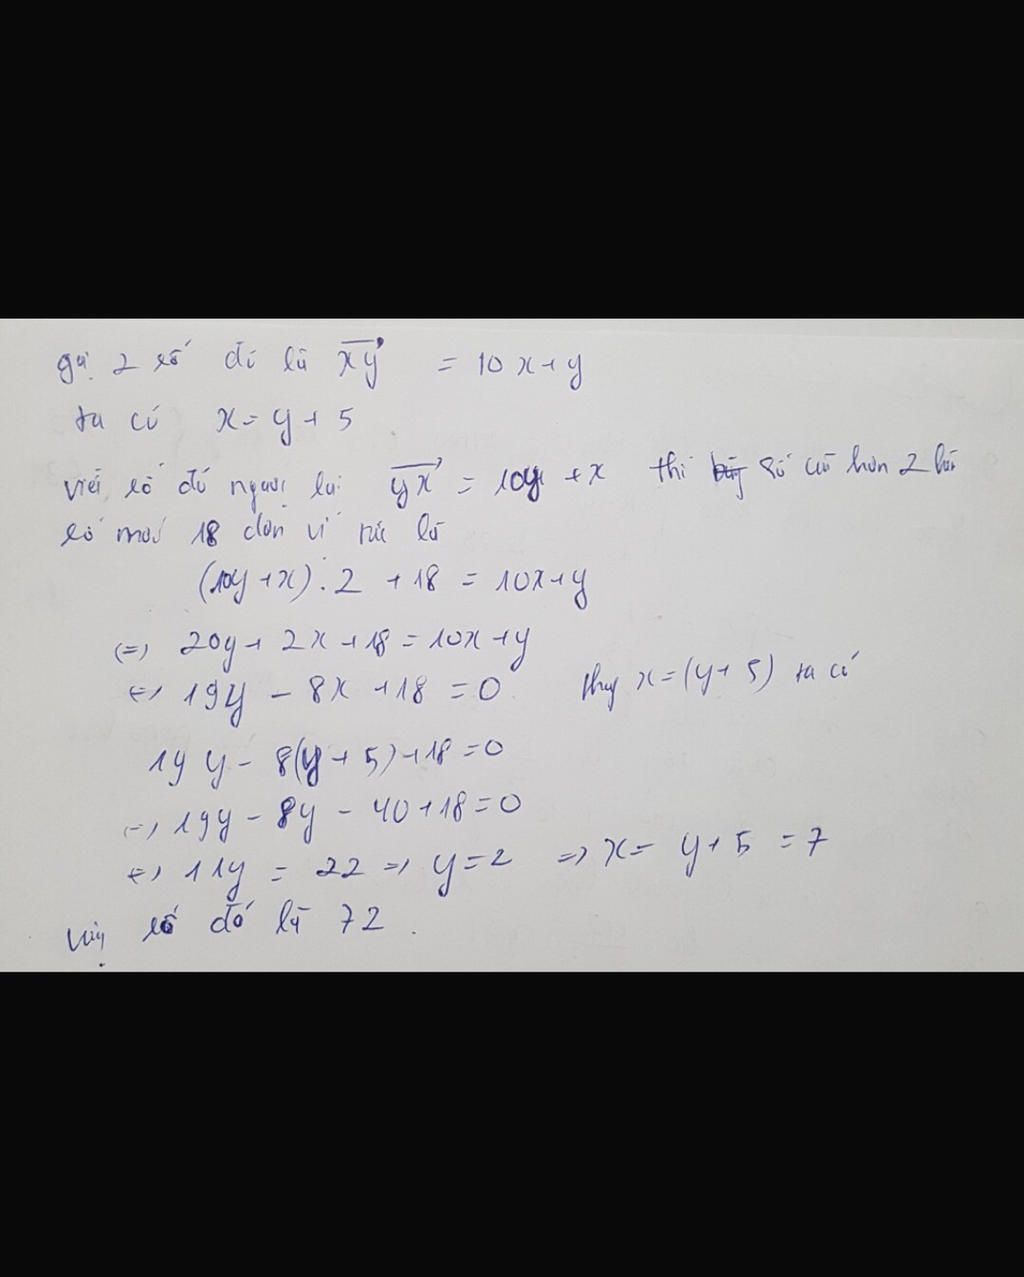 gọi 2 số đó là xy = 10x+y
ta có x = y + 5
viết số đó ngược lại yx = 10y + x thì số cũ hơn 2 lần
số mới 18 đơn vị tức là
(10y+x).2 + 18 = 10x+y
(=) 20y + 2x + 18 = 10x + y
<=> 19y - 8x + 18 = 0 thay x = (y + 5) ta có
19y - 8(y + 5) + 18 = 0
(=) 19y - 8y - 40 + 18 = 0
<=> 11y = 22 => y = 2 => x = y + 5 = 7
Vậy số đó là 72.